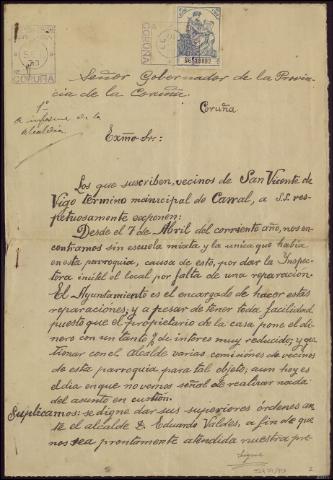 CORUÑA
CORUÑA
Señor Gobernador de la Provin
cia de la Coruña.
Coruña
1º
a informe de la
Alcaldía
Exmo Sr:
Los que suscriben, vecinos de San Vicente de
Vigo término municipal de Carral, a S.S. res
petuosamente exponen:
Desde el 7 de Abril del corriente año, nos en-
contramos sin escuela mixta y la unica que había
en esta parroquia, causa de esto, por dar la Inspec
tora inutil el local por falta de una reparación.
El Ayuntamiento es el encargado de hacer estas
reparaciones, y a pesar de tener toda facilidad
puesto que el propietario de la casa pone el di
nero con un tanto % de interes muy reducido; y ges
tionar con el Alcalde varias comisiones de vecinos
de esta parroquia para tal objeto, aun hoy es
el dia en que no vemos señal de realizar nada
del asunto en cuestión.
Suplicamos: se digne dar sus superiores órdenes an
te el alcalde D. Eduardo Valdés, a fin de que
nos sea prontamente atendida nuestra pe-
Sigue
2